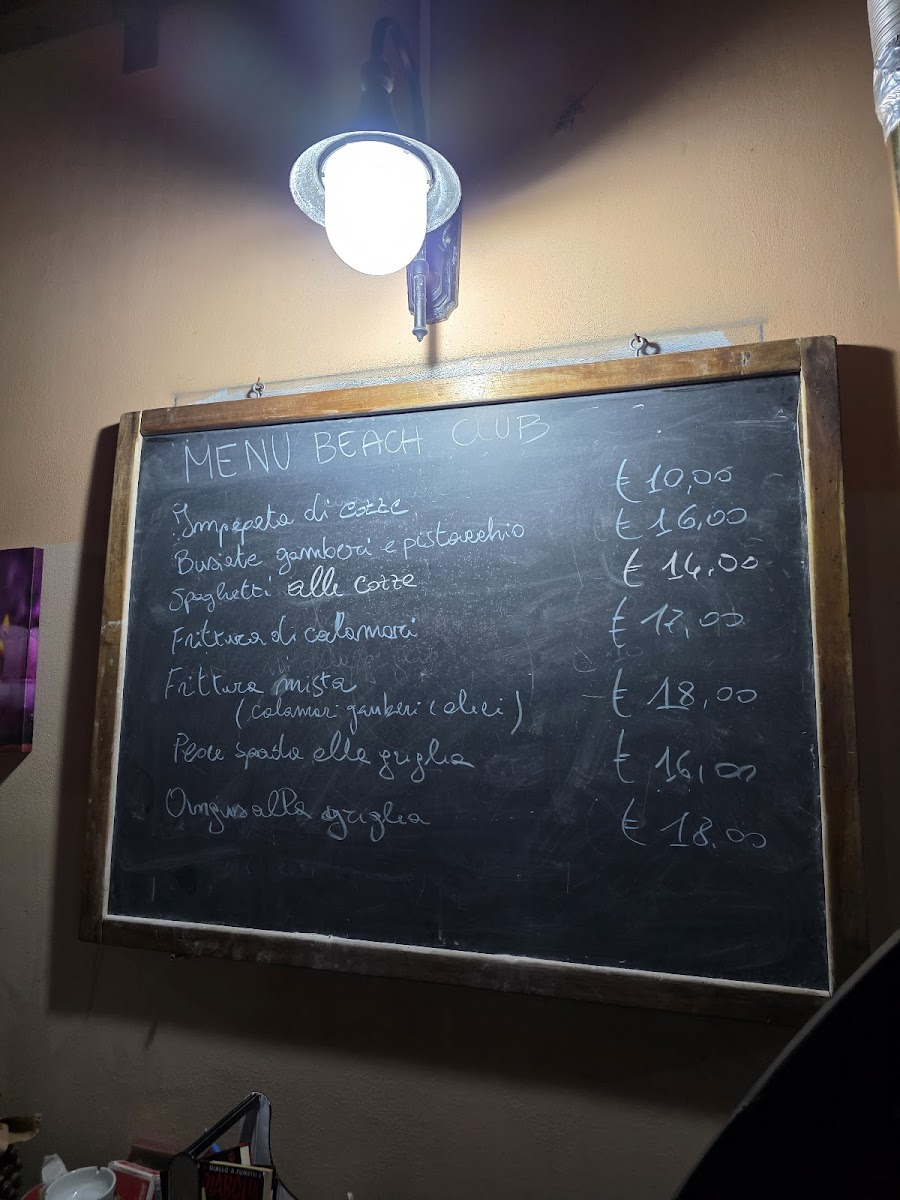 MENU BEACH CLUB
Impepata di cozze € 10,00
Busiate gamberi e pistacchio € 16,00
Spaghetti alle cozze € 14,00
Frittura di calamari € 17,00
Frittura mista € 18,00
(calamari gamberi e alici)
Pesce spada alla griglia € 16,00
Angus alla griglia € 18,00